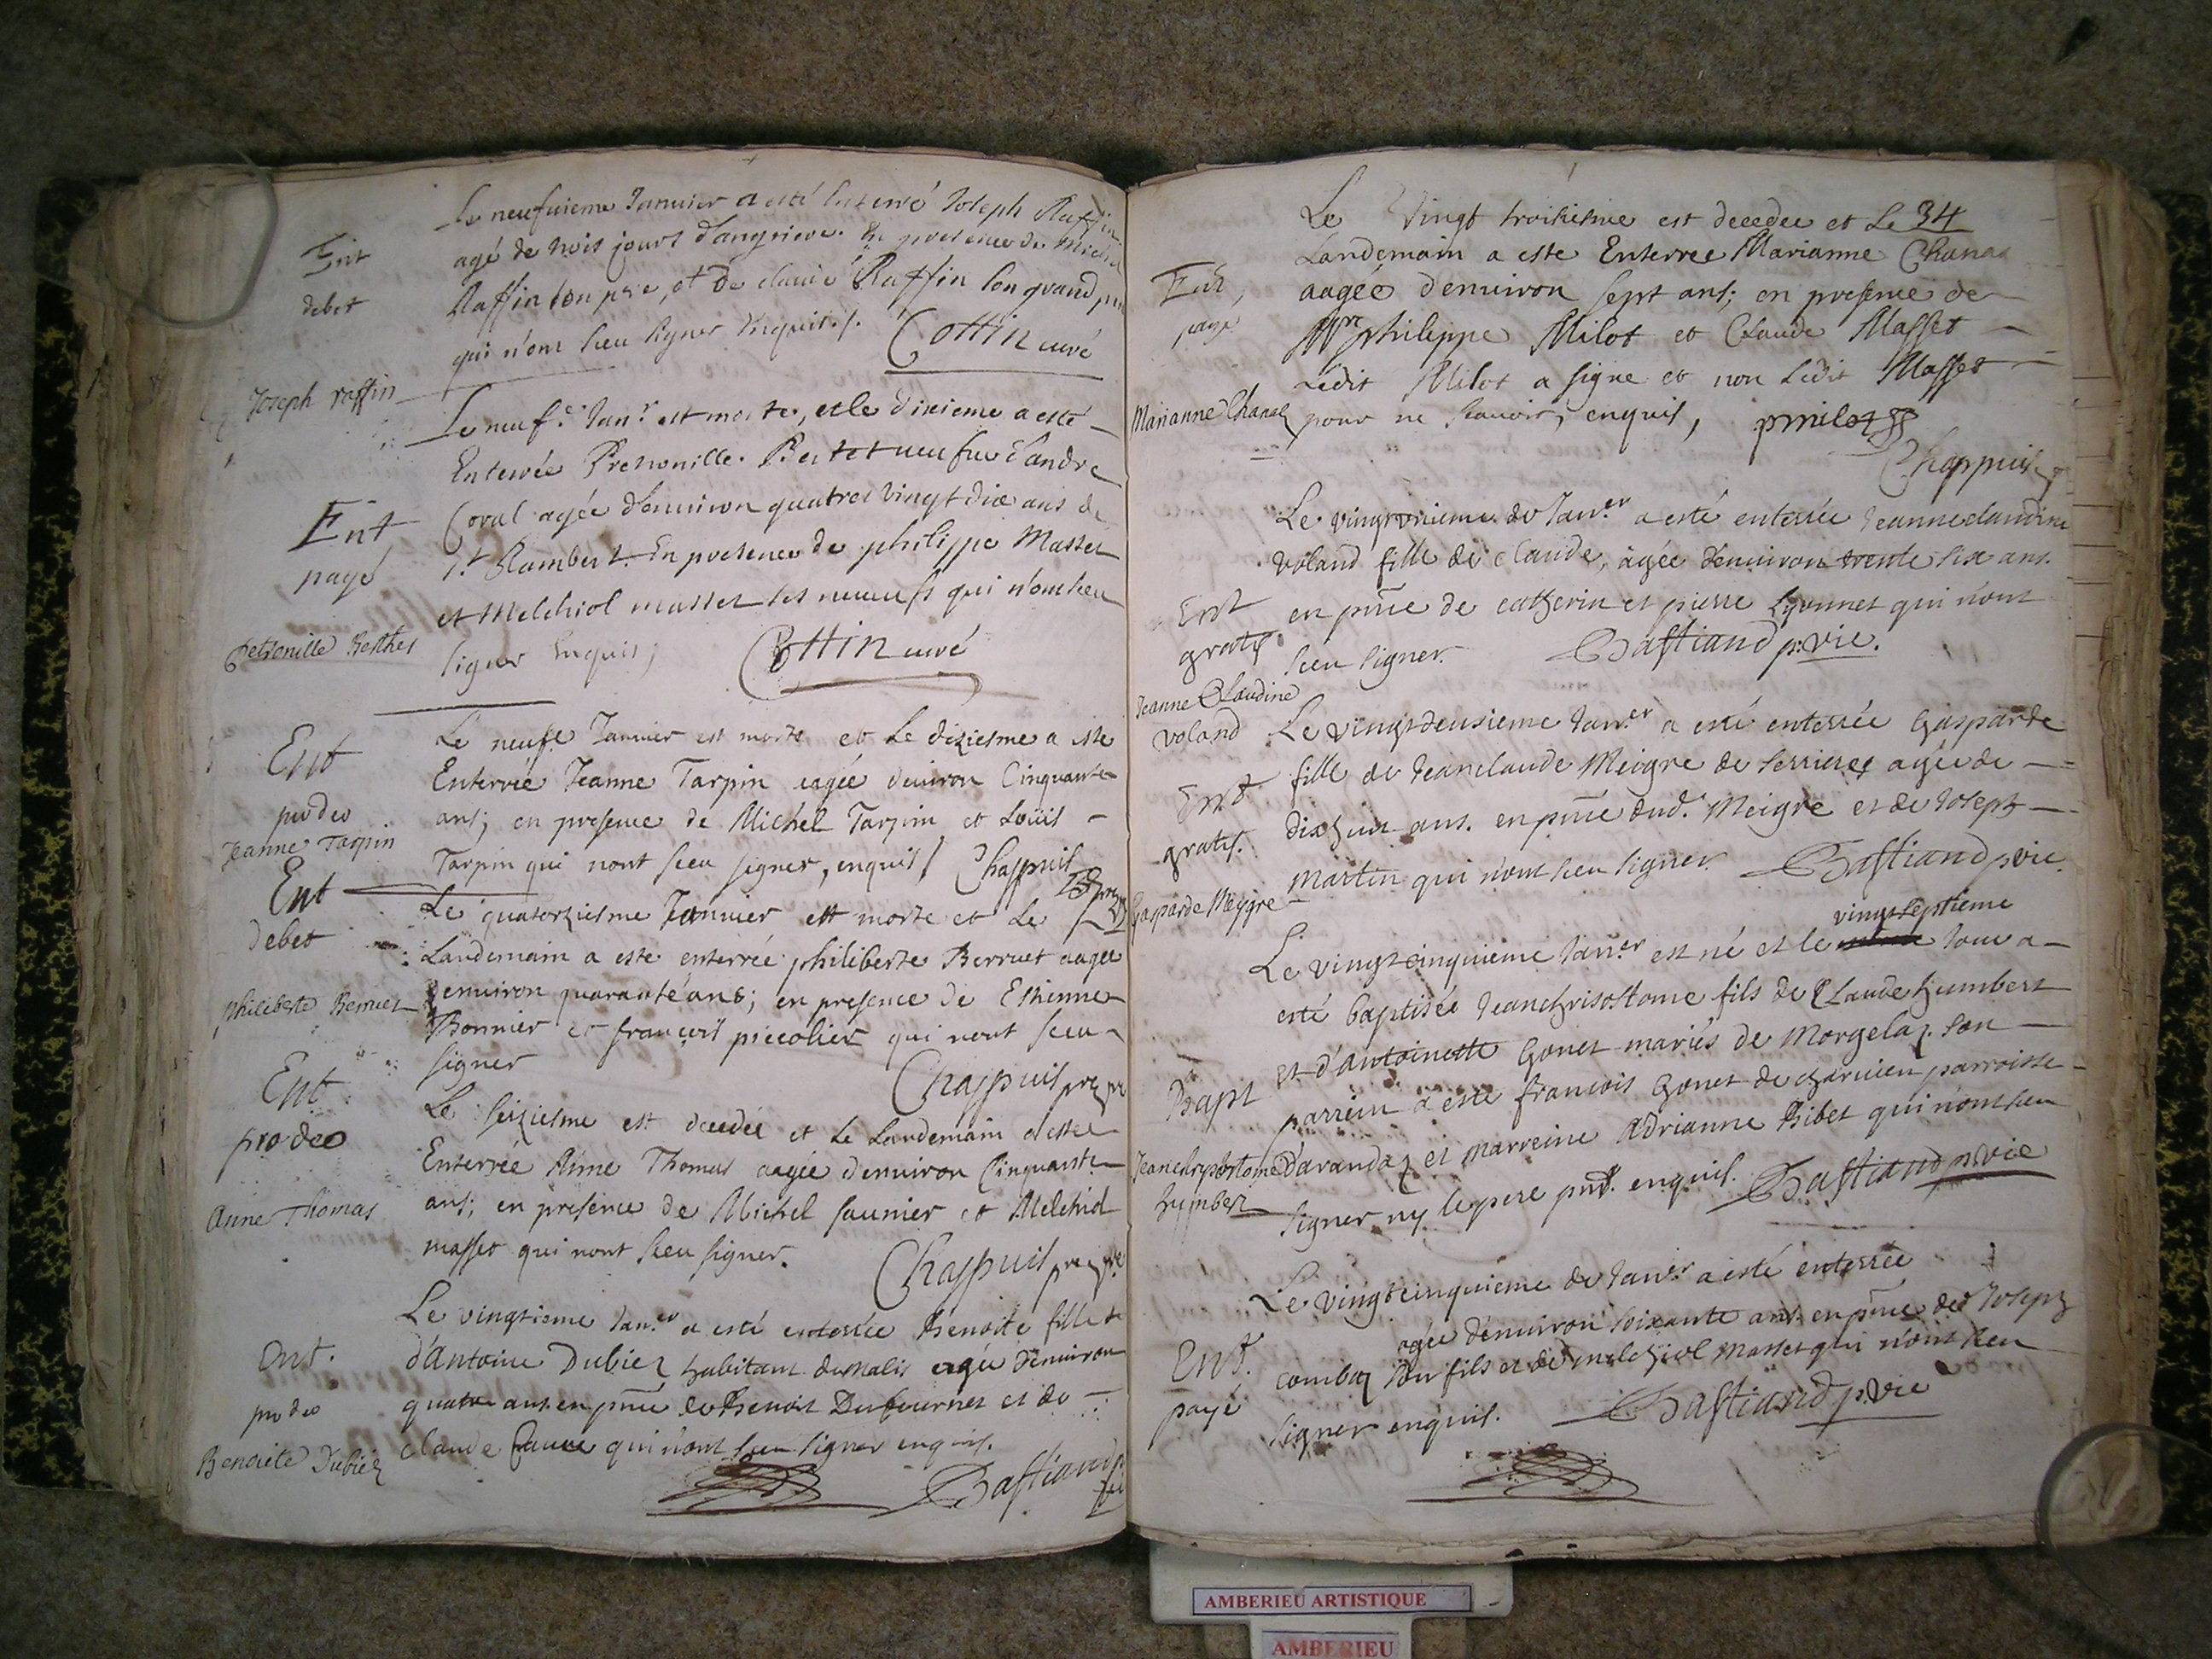 Le neufuieme Januier a esté Enterré Joseph Raffin
Ent
agé de trois jours d'angrieve. En presence de Michel
debet
Raffin son pere, et de claude Raffin son grand pere
qui n'ont sceu signer Enquis./.
Cottin curé
Joseph raffin
Le neuf.e Jan.r est morte, et le dixieme a esté
Enterrée Petronille Bertet veufue d'andre
Ent
Coval agée d'enuiron quatres vingt dix ans de
payé
s.t Rambert. En presence de philippe Masset
et Melchiol masset ses neueufs qui n'ont sceu
Petronille Berthet
signer Enquis;
Cottin curé
Le neufe Januier est morte et Le dixiesme a este
Ent
Enterrée Jeanne Tarpin aagée d'enuiron Cinquante
pro deo
ans; en presence de Michel Tarpin et Loüis
Jeanne Tarpin
Tarpin qui nont sceu signer, enquis/ Chappuis
Ent
Le quatorziesme Januier est morte et Le
debet
Landemain a este enterrée philiberte Berruet aagée
philiberte Berruet
d'enuiron quarante ans; en presence de Estienne
Bonnier et françois piccolier qui nont sceu
signer
Ent
Chappuis
Le seiziesme est decedée et Le Landemain a este
pro deo
Enterrée Anne Thomas aagée d'enuiron Cinquante
Anne Thomas
ans; en presence de Michel saunier et Melchiol
masset qui nont sceu signer.
Chappuis
Le vingtieme Jan.er a esté enterrée Benoite fille
Ent.
d'Antoine Dubiez habitant agée d'enuiron
pro deo
quatre ans en pnce de Benoit Dufournet et de
Benoite Dubiez
claude qui n'ont sceu signer enquis.
Bastiand
34
Le Vingt troisiesme est decedee et Le
Landemain a este Enterree Marianne Chanaz
Ent,
aagée d'enuiron sept ans; en presence de
payé
philippe Milot et Claude Masset
Ledit Milot a signe et non Ledit Masset
Marianne Chanaz
pour ne scauoir, enquis, pmilot
Chappuis
Le vingt vnieme de Jan.er a esté enterrée Jeanneclaudine
Voland fille de claude, agée d'enuiron trente six ans.
Ent
en pnce de catherin et pierre Lyonnet qui n'ont
gratis
sceu signer.
Bastiand p: vic.
Jeanne Claudine
voland
Le vingtdeusieme Jan.er a esté enterrée Gasparde
Ent
fille de Jeanclaude Meigre de serrieres agée de
gratis.
dixhuit ans. en pnce dud. Meigre et de Joseph
martin qui n'ont sceu signer.
Bastiand p vic
Gasparde Meygre
vingtseptieme
Le vingtcinquieme Jan.er est né et le Jour a
esté baptisée Jeanchrisostome fils de Claude humbert
et d'antoinette Gonet mariés de Morgelaz. son
Bapt
parrein a esté francois Gonet de charuieu parroisse
Jeanchrysostome
d'arandaz et marreine Adrianne Bibet qui n'ont sceu
humbert
signer ny le pere pnt. enquis.
Bastiand p vic
Le vingtcinquieme de Jan.er a esté enterrée
agée d'enuiron soixante ans en pnce de Joseph
Ent.
combaz son fils et de melchiol masset qui n'ont sceu
payé
signer enquis.
Bastiand p. vic
AMBERIEU ARTISTIQUE
AMBERIEU